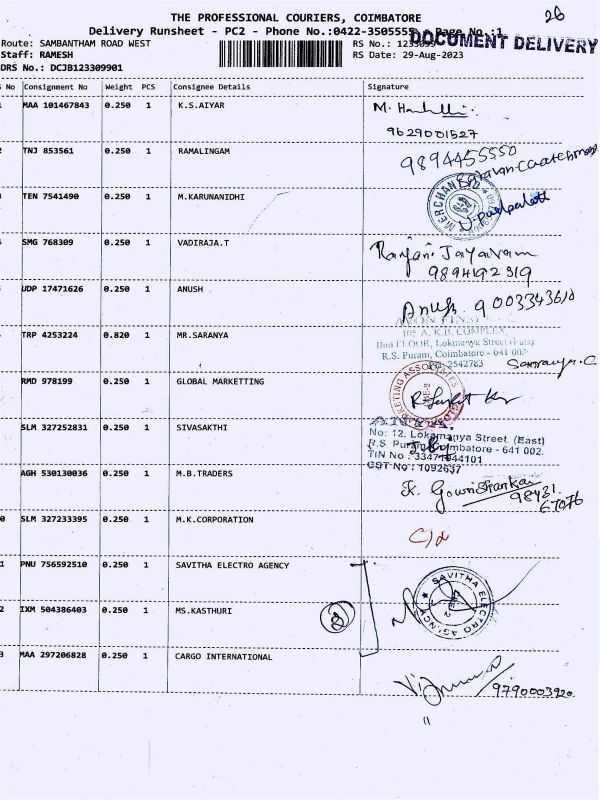 THE PROFESSIONAL COURIERS, COIMBATORE
28
Delivery Runsheet - PC2 - Phone No.:0422-3505555 Page No.:1
DOCUMENT DELIVERY
Route: SAMBANTHAM ROAD WEST
Staff: RAMESH
DRS No.: DCJB123309901
RS No.:
RS Date: 29-Aug-2023
No Consignment No Weight PCS Consignee Details Signature
MAA 101467843 0.250 1 K.S.AIYAR
9629001527
TNJ 853561 0.250 1 RAMALINGAM 9894455550
TEN 7541490 0.250 1 M.KARUNANIDHI
SMG 768309 0.250 1 VADIRAJA.T Ranjani Jayaram
9894192319
UDP 17471626 0.250 1 ANUSH Anush 9003343610
TRP 4253224 0.820 1 MR.SARANYA
105 A, K.B. COMPLEX,
IInd FLOOR, Lokmanya Street (East)
R.S. Puram, Coimbatore - 641 002
2542783
Saranya.C
RMD 978199 0.250 1 GLOBAL MARKETTING
SLM 327252831 0.250 1 SIVASAKTHI
No: 12, Lokamanya Street, (East)
R.S. Puram, Coimbatore - 641 002.
TIN No : 33471044101
CST No : 1092637
AGH 530130036 0.250 1 M.B.TRADERS K. Gowrishankar
98431
67076
SLM 327233395 0.250 1 M.K.CORPORATION
PNU 756592510 0.250 1 SAVITHA ELECTRO AGENCY
SAVITHA ELECTRO AGENCY
IXM 504386403 0.250 1 MS.KASTHURI
MAA 297206828 0.250 1 CARGO INTERNATIONAL
9790003920